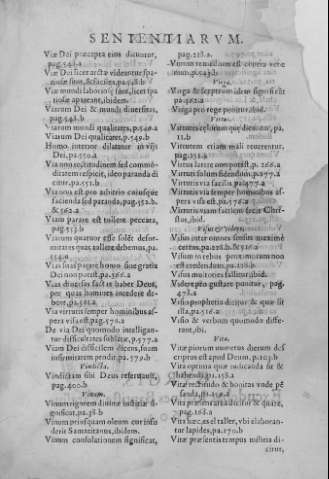 SENTENTIARVM.
Viæ Dei præcepta eius dicuntur,
pag.548.a
Viæ Dei licet arctæ videantur spa-
Viæ mundi laboriosę sunt, licet spa-
tiosæ appareant, ibidem.
Viarum Dei & mundi diuersitas,
pag.548.b
Viarum mundi qualitates, p.549.a
Viarum Dei qualitates, p.549.b
Homo interior dilatatur in vijs
Dei, pa.550.a
Via non rectitudinem sed commo-
ditatem respicit, ideo paranda di
citur, pa.551.b
Via non est pro arbitrio cuiusque
facienda sed paranda, pa.551.b.
& 562.a
Viam parare est tollere peccata,
pag.553.b
Viarum quatuor esse solet defor-
mitates quas tollere debemus, pa.
554.a
Vias suas parare homo sine gratia
Dei non potest pa.561.a
Vias diuersas facit & habet Deus,
per quas homines incedere de-
bent, pa.561.a
Via virtutis semper hominibus as-
pera visa est, pag.576.a
De via Dei quomodo intelligan-
tur difficultates sublatæ, p.577.a
Viam Dei difficilem dicens, suam
infirmitatem prodit, pa.579.b
Vindicta.
Vindictam sibi Deus reseruauit,
pag.400.b
Vinum.
Vinum rigorem diuinæ iustitiæ si-
gnificat, pa.38.b
Vinum priusquam oleum cur infu
derit Samaritanus, ibidem.
Vinum consolationem significat,
pag.218.a.
Vinum remedium est copia veræ
Virga.
Virga & sceptrum idem significat
Virga pro rege ponitur, ibid.
Virtus.
Virtutes cælorum quę dicantur, pa.
Virtutem etiam mali reuerentur,
pag.151.a
Virtus latere non potest, p.266.a
Virtus solum fidendum, p.277.a
Virtutis via facilis pa.477.a
Virtutis via semper hominibus as-
pera visa est, pa.576.a
Virtutis viam facilem fecit Chri-
stus, ibid.
Visus & videre.
Visus inter omnes sensus maximè
Visum in rebus
Visus multoties fallitur, ibid.
Videre pro gustare ponitur, pag.
478.a
Visio prophetia dicitur & quæ sit
illa, pa.516.a
Visio & verbum quomodo diffe-
rant, ibi.
Vita.
Vitæ piorum numerus dierum des
criptus est apud Deum, p.103.b
Vita optima quæ iudicanda sit &
Vitæ rectitudo & bonitas vnde pẽ
Vita præsens arca dicitur & quare,
pag.168.a
Vita hæc, est taller, vbi elaboran-
tur lapides, pa.170.b
Vitæ præsentis tempus nostra di-
citur,